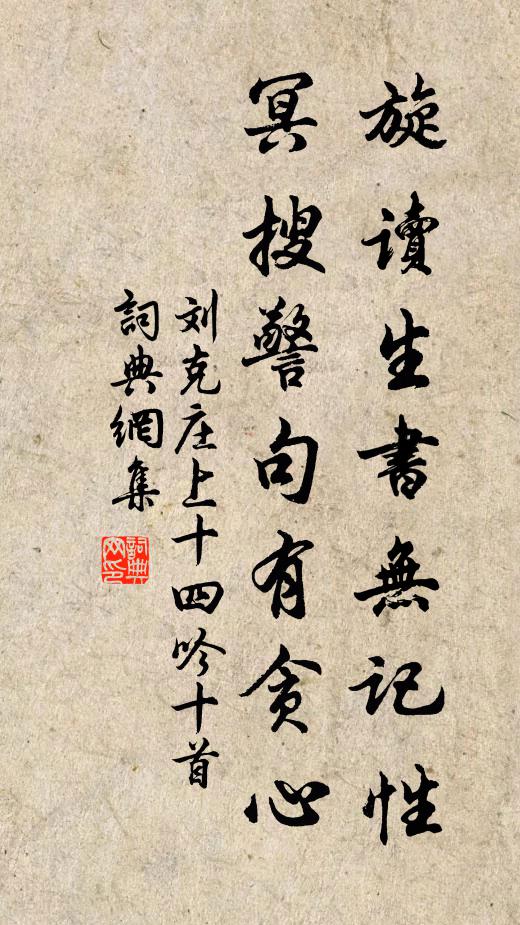 旋读生書無记性
冥搜警句有贪心
刘克庄上十四吟十首
詞典網集
詞典网印